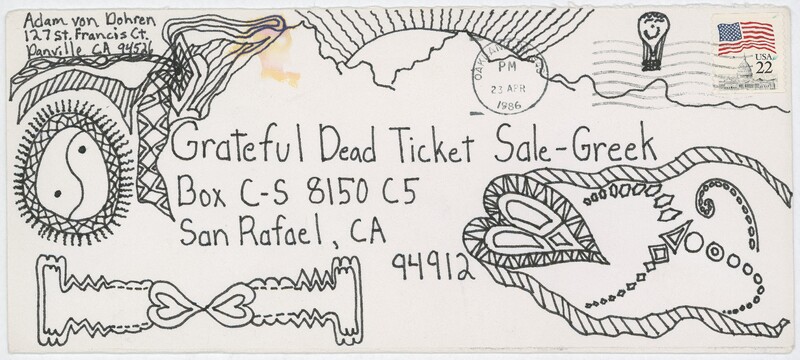 Adam von Dohren
127 St. Francis Ct.
Danville CA 94526
OAKLAND
PM
23 APR
1986
USA
22
Grateful Dead Ticket Sale-Greek
Box C-S 8150 C5
San Rafael, CA
94912